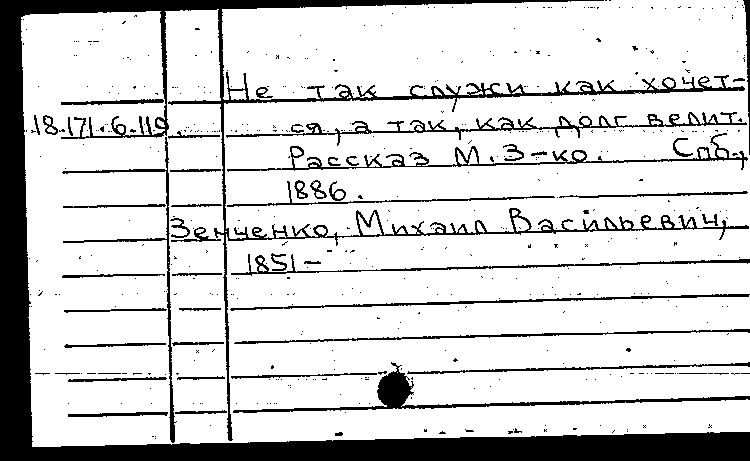 Не так служи как хочет-
18.171.6.119. ся, а так, как долг велит.
Рассказ М. З-ко. Спб.,
1886.
Зенченко, Михаил Васильевич,
1851-